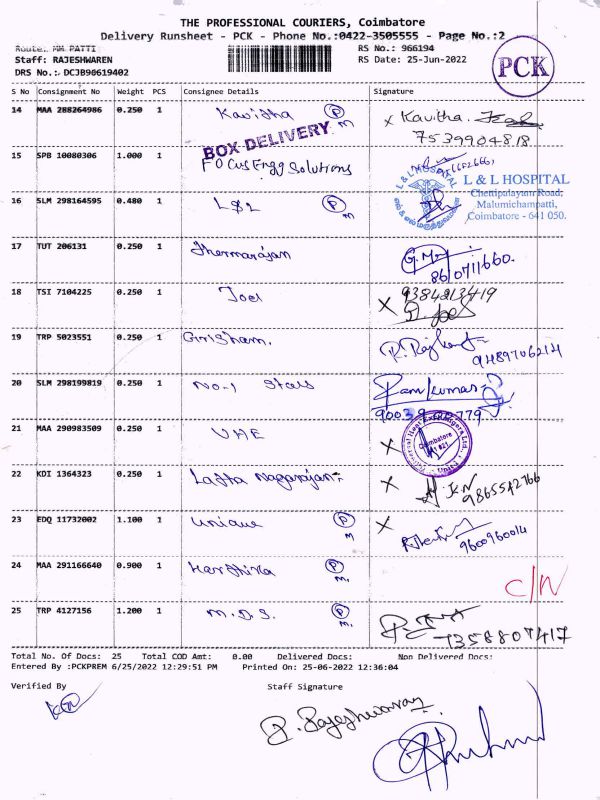 THE PROFESSIONAL COURIERS, Coimbatore
Delivery Runsheet - PCK - Phone No.:0422-3505555 - Page No.:2
Route: MM PATTI
RS No.: 966194
Staff: RAJESHWAREN
RS Date: 25-Jun-2022
DRS No.: DCJB90619402
PCK
S No Consignment No Weight PCS Consignee Details Signature
14 MAA 288264986 0.250 1 Kavitha P M x Kavitha.
7539904818
BOX DELIVERY
15 SPB 10080306 1.000 1 Focus Engg Solutions
L & L HOSPITAL
Chettipalayam Road,
Malumichampatti,
Coimbatore - 641 050.
16 SLM 298164595 0.480 1 L&L P M
17 TUT 206131 0.250 1 Thermarajan
8610711660.
18 TSI 7104225 0.250 1 Joel x 9384213419
Joel
19 TRP 5023551 0.250 1 Girisham.
9489706214
20 SLM 298199819 0.250 1 No.1 Stars Ramkumar
21 MAA 290983509 0.250 1 UHE x
Coimbatore
22 KDI 1364323 0.250 1 Latha Nagarajan x
9865542766
23 EDQ 11732002 1.100 1 Unique P M x
9600960014
24 MAA 291166640 0.900 1 Harshika P M. C/N
25 TRP 4127156 1.200 1 M.D.S. P M.
7358807417
Total No. Of Docs: 25 Total COD Amt: 0.00 Delivered Docs: Non Delivered Docs:
Entered By :PCKPREM 6/25/2022 12:29:51 PM Printed On: 25-06-2022 12:36:04
Verified By Staff Signature
R. Rajeshwaran